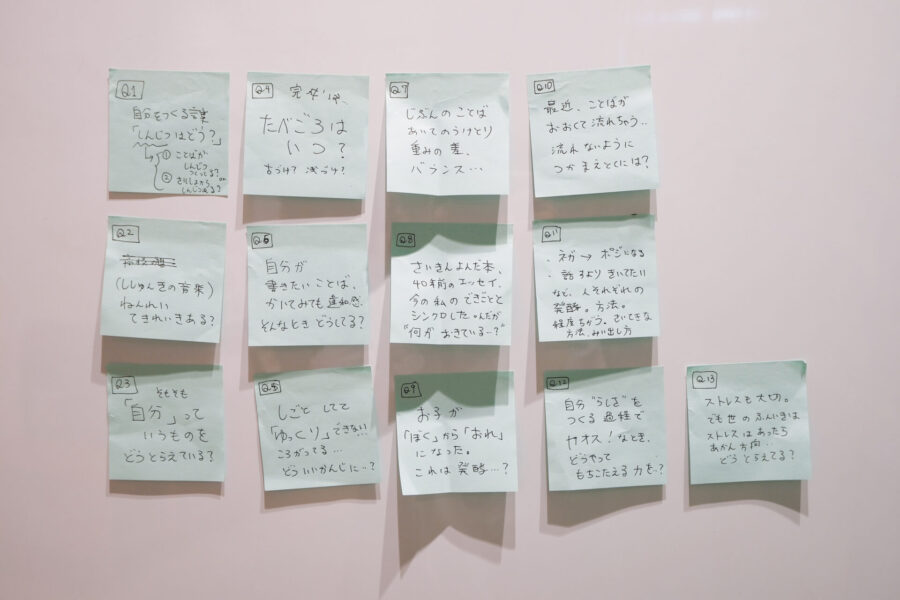 Q1
自分をつくる言葉
「しんじつはどう?」
① ことばが
しんじつ
つくってる?
② さきにしんじつある?
Q2
(ししゅんきの音楽)
ねんれい
てきれいきある?
Q3
そもそも
「自分」って
いうものを
どうとらえている?
Q4
完熟は、
たべごろは
いつ?
古づけ? 浅づけ?
Q6
自分が
書きたいことば、
かいてみても違和感。
そんなとき どうしてる?
しごと してて
「ゆっくり」できない…
ころがってる…
どう いいかんじに…?
Q7
じぶんのことば
あいてのうけとり
重みの差、
バランス…
Q8
さいきんよんだ本、
40年前のエッセイ、
今の私のできごとと
シンクロした。んだが
"何が おきている…?"
Q9
お子が
「ぼく」から「おれ」
になった。
これは 発酵…?
Q10
最近、ことばが
おおくて流れちゃう…
流れないように
つかまえとくには?
Q11
・ネガ→ポジになる
・話すよりきいてたい
など、人それぞれの
発酵。方法。
程度ちがう。さいてきな
方法、みい出し方
Q12
自分"らしさ"を
つくる過程で
カオス!なとき、
どうやって
もちこたえる力を?
Q13
ストレスも大切。
でも世のふんいきは
ストレスはあったら
あかん方向…
どうとらえてる?